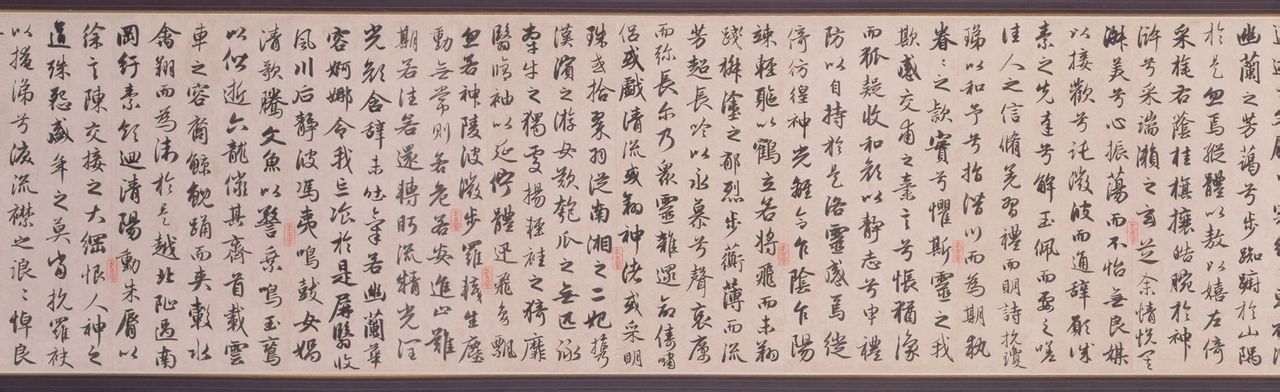 幽蘭之芳藹兮步踟躕於山隅
於是忽焉縱體以敖以嬉左倚
采旄右蔭桂旗攘皓腕於神
滸兮采湍瀨之玄芝余情悅其
淑美兮心振蕩而不怡無良媒
以接歡兮託微波而通辭願誠
素之先達兮解玉佩而要之嗟
佳人之信脩羌習禮而明詩抗瓊
珶以和予兮指潛川而為期執
眷〻之款實兮懼斯靈之我
欺感交甫之棄言兮悵猶豫
而狐疑收和顏以靜志兮申禮
防以自持於是洛靈感焉徙
倚彷徨神光離合乍陰乍陽
竦輕軀以鶴立若將飛而未翔
踐椒塗之郁烈步蘅薄而流
芳超長吟以永慕兮聲哀厲
而彌長爾乃眾靈雜遝命儔嘯
侶或戲清流或翔神渚或采明
珠或拾翠羽從南湘之二妃攜
漢濱之游女歎匏瓜之無匹詠
牽牛之獨處揚輕袿之猗靡
翳脩袖以延佇體迅飛鳧飄
忽若神陵波微步羅襪生塵
動無常則若危若安進止難
期若往若還轉眄流精光潤
顏含辭未吐氣若幽蘭華
容婀娜令我忘飡於是屏翳收
風川后靜波馮夷鳴鼓女媧
清歌騰文魚以警乘鳴玉鸞
以偕逝六龍儼其齊首載雲
車之容裔鯨鯢踊而夾轂水
禽翔而為衛於是越北沚過南
岡紆素領迴清陽動朱脣以
徐言陳交接之大綱恨人神之
道殊怨盛年之莫當抗羅袂
以掩涕兮淚流襟之浪〻悼良